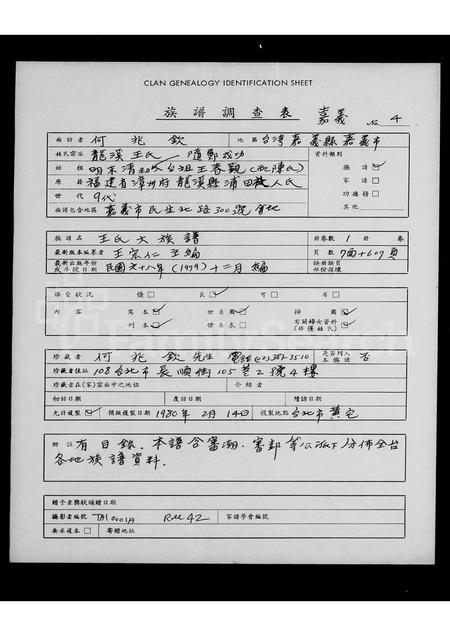 CLAN GENEALOGY IDENTIFICATION SHEET
族譜調查表 嘉義 No. 4
面訪者 何兆欽 地區 台灣嘉義縣嘉義市
姓氏宗派 龍溪王氏 隨鄭成功 資料類別
始祖 明末清初 台祖王春觀(配陳氏) 族譜 ☑
原籍 福建省漳州府龍溪縣浦田 人氏 家譜 □
世代 9代 功德榜 □
族譜包含地區 嘉義市民生北路300號 等地 其他
族譜名 王氏大族譜 冊卷數 1 冊 卷
最新出版本編著者 王宗仁 主編 頁數 7面+607頁
最新出版年份或手筊日期 民國六十八年(1979)十二月編 缺冊缺頁部份描述
保管狀況 優□ 良☑ 可□ 劣□
內容 寫本□ 世系圖☑ 揷圖☑
刊本☑ 世系表□ 有關婦女資料(非僅姓氏)□
珍藏者 何兆欽先生 電話(02)351-3510 是否列入本族譜 否
珍藏者住址 108台北市長順街105巷2號4樓
珍藏者在(家)宗族中之地位 介紹者
初訪日期 度訪日期 續訪日期
允許複製☑ 預擬複製日期 1980年2月14日 複製地點 台北市黃宅
附註 有目錄。本譜含審潮、審邽等 分佈全台
各地族譜資料。
贈予者獎狀頒贈日期
攝影者編號 TAI0001A Rm 42 家譜學會編號
要求複本□ 寄贈地址